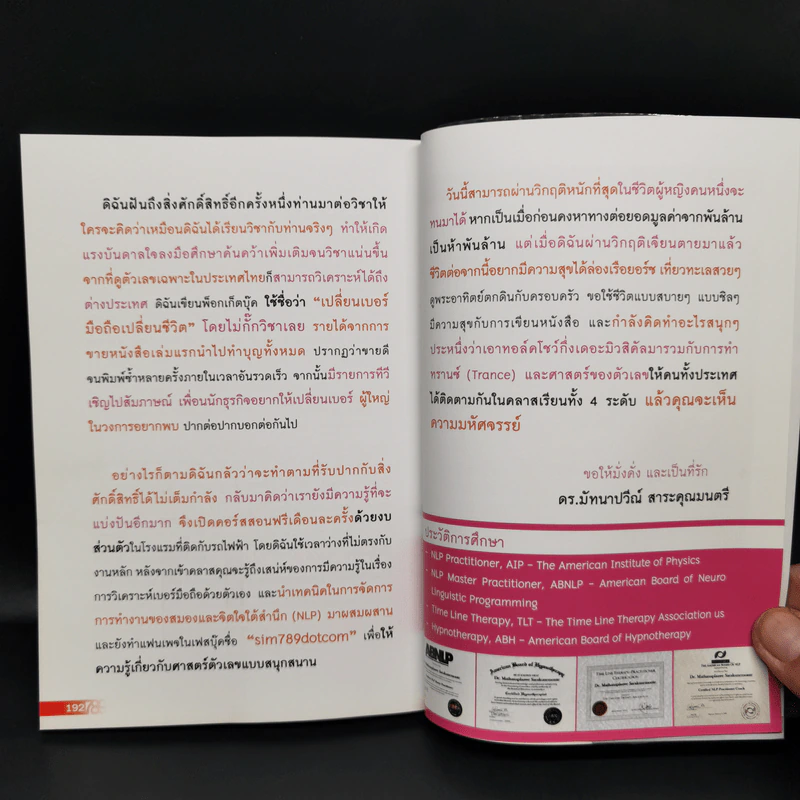 ดิฉันฝันถึงสิ่งศักดิ์สิทธิ์อีกครั้งหนึ่งท่านมาต่อวิชาให้
ใครจะคิดว่าเหมือนดิฉันได้เรียนวิชากับท่านจริงๆ ทำให้เกิด
แรงบันดาลใจลงมือศึกษาค้นคว้าเพิ่มเติมจนวิชาแน่นขึ้น
จากที่ดูตัวเลขเฉพาะในประเทศไทยก็สามารถวิเคราะห์ได้ถึง
ต่างประเทศ ดิฉันเขียนพ็อกเก็ตบุ๊ค ใช้ชื่อว่า “เปลี่ยนเบอร์
มือถือเปลี่ยนชีวิต” โดยไม่กั๊กวิชาเลย รายได้จากการ
ขายหนังสือเล่มแรกนำไปทำบุญทั้งหมด ปรากฏว่าขายดี
จนพิมพ์ซ้ำหลายครั้งภายในเวลาอันรวดเร็ว จากนั้นมีรายการทีวี
เชิญไปสัมภาษณ์ เพื่อนนักธุรกิจอยากให้เปลี่ยนเบอร์ ผู้ใหญ่
ในวงการอยากพบ ปากต่อปากบอกต่อกันไป
อย่างไรก็ตามดิฉันกลัวว่าจะทำตามที่รับปากกับสิ่ง
ศักดิ์สิทธิ์ได้ไม่เต็มกำลัง กลับมาคิดว่าเรายังมีความรู้ที่จะ
แบ่งปันอีกมาก จึงเปิดคอร์สสอนฟรีเดือนละครั้งด้วยงบ
ส่วนตัวในโรงแรมที่ติดกับรถไฟฟ้า โดยดิฉันใช้เวลาว่างที่ไม่ตรงกับ
งานหลัก หลังจากเข้าคลาสคุณจะรู้ถึงเสน่ห์ของการมีความรู้ในเรื่อง
การวิเคราะห์เบอร์มือถือด้วยตัวเอง และนำเทคนิคในการจัดการ
การทำงานของสมองและจิตใจใต้สำนึก (NLP) มาผสมผสาน
และยังทำแฟนเพจในเฟสบุ๊คชื่อ “sim789dotcom” เพื่อให้
ความรู้เกี่ยวกับศาสตร์ตัวเลขแบบสนุกสนาน
192
วันนี้สามารถผ่านวิกฤติหนักที่สุดในชีวิตผู้หญิงคนหนึ่งจะ
ทนมาได้ หากเป็นเมื่อก่อนคงหาทางต่อยอดมูลค่าจากพันล้าน
เป็นห้าพันล้าน แต่เมื่อดิฉันผ่านวิกฤติเจียนตายมาแล้ว
ชีวิตต่อจากนี้อยากมีความสุขได้ล่องเรือยอร์ช เที่ยวทะเลสวยๆ
ดูพระอาทิตย์ตกดินกับครอบครัว ขอใช้ชีวิตแบบสบายๆ แบบชิลๆ
มีความสุขกับการเขียนหนังสือ และกำลังคิดทำอะไรสนุกๆ
ประหนึ่งว่าเอาทอล์คโชว์กึ่งเดอะมิวสิคัลมารวมกับการทำ
ทรานซ์ (Trance) และศาสตร์ของตัวเลขให้คนทั้งประเทศ
ได้ติดตามกันในคลาสเรียนทั้ง 4 ระดับ แล้วคุณจะเห็น
ความมหัศจรรย์
ขอให้มั่งคั่ง และเป็นที่รัก
ดร.มัทนาปวีณ์ สาระคุณมนตรี
ประวัติการศึกษา
- NLP Practitioner, AIP - The American Institute of Physics
- NLP Master Practitioner, ABNLP - American Board of Neuro
Linguistic Programming
- Time Line Therapy, TLT - The Time Line Therapy Association us
- Hypnotherapy, ABH - American Board of Hypnotherapy
ABNLP
American Board of Hypnotherapy